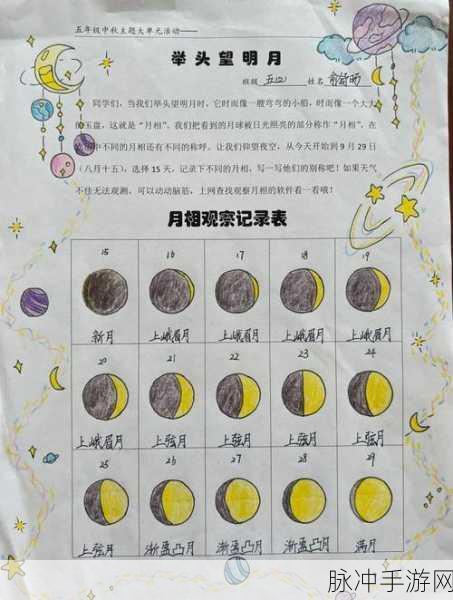 五年级中秋主题大单元活动——
举头望明月
班级 五(四) 姓名
同学们，当我们举头望明月时，它时而像一艘弯弯的小船，时而像一个大大
的玉盘，这就是“月相”。我们把看到的月球被日光照亮的部分称作“月相”，在
不同的月相还有不同的称呼。让我们仰望夜空，从今天开始到9月29日
（八月十五），选择15天，记录下不同的月相，写一写他们的别称吧！如果天气
不佳无法观测，可以动动脑筋，上网查找观察月相的软件看一看哦！
月相观察记录表
15 16 17 18 19
新月 上峨眉月 上峨眉月 上峨眉月 上峨眉月
20 21 22 23 24
上峨眉月 上弦月 上弦月 上弦月 上弦月
25 26 27 28 29
上弦月 渐盈凸月 渐盈凸月 渐盈凸月 满月
脉冲手游网